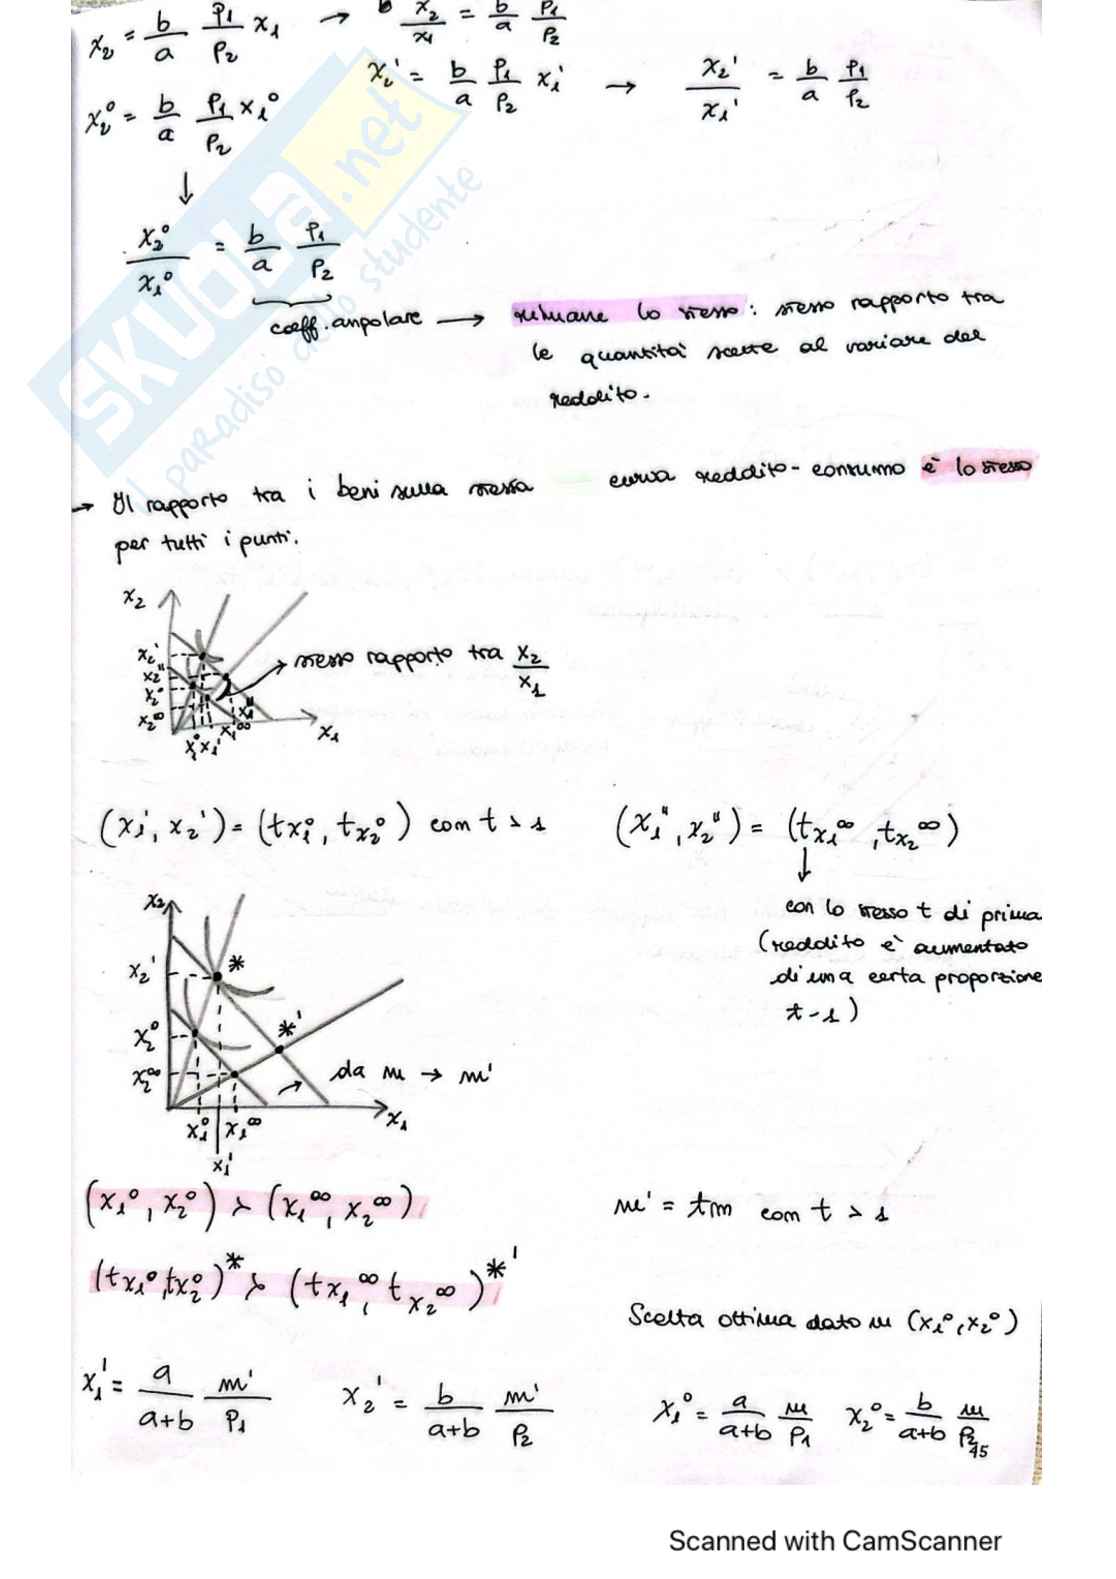 x₂ = b/a p₁/p₂ x₁ → x₂/x₁ = b/a p₁/p₂
x₂' = b/a p₁/p₂ x₁' → x₂'/x₁' = b/a p₁/p₂
x₂⁰ = b/a p₁/p₂ x₁⁰
↓
x₂⁰/x₁⁰ = b/a p₁/p₂
coeff. angolare → rimane lo stesso: stesso rapporto tra
le quantità scelte al variare del
reddito.
→ Il rapporto tra i beni sulla stessa curva reddito-consumo è lo stesso
per tutti i punti.
x₂
x₂'
x₂''
x₂⁰
x₂⁰⁰
→ stesso rapporto tra x₂/x₁
x₁⁰ x₁' x₁⁰⁰ x₁'' x₁
(x₁', x₂') = (tx₁⁰, tx₂⁰) con t > 1
(x₁'', x₂'') = (tx₁⁰⁰, tx₂⁰⁰)
↓
con lo stesso t di prima
(reddito è aumentato
di una certa proporzione
t-1)
x₂
x₂' *
x₂⁰ *'
x₂⁰⁰ da m → m'
x₁⁰ x₁⁰⁰ x₁
x₁'
(x₁⁰, x₂⁰) ≻ (x₁⁰⁰, x₂⁰⁰)
m' = tm con t > 1
(tx₁⁰, tx₂⁰)* ≻ (tx₁⁰⁰, tx₂⁰⁰)*'
Scelta ottima dato m (x₁⁰, x₂⁰)
x₁' = a/a+b m'/p₁ x₂' = b/a+b m'/p₂
x₁⁰ = a/a+b m/p₁ x₂⁰ = b/a+b m/p₂
45
SKUOLA.net
il paradiso dello studente
Scanned with CamScanner